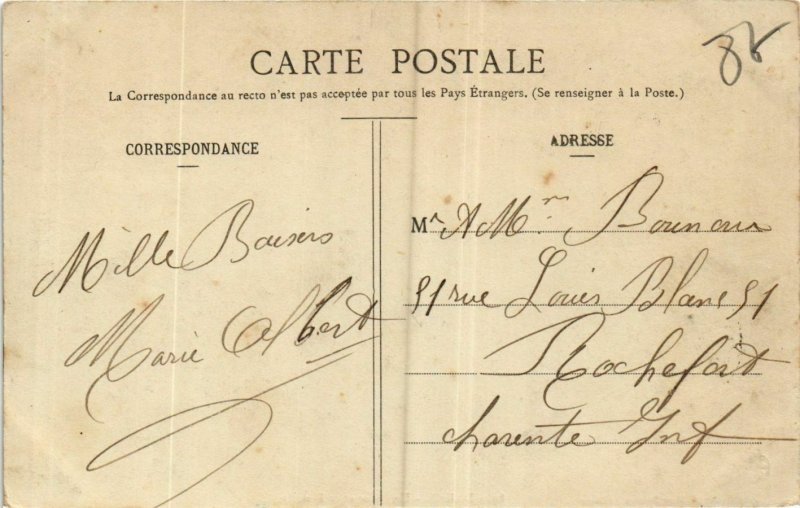 86
CARTE POSTALE
La Correspondance au recto n'est pas acceptée par tous les Pays Étrangers. (Se renseigner à la Poste.)
CORRESPONDANCE
Mille Baisers
Marie Albert
ADRESSE
Mr & Mme
51 rue Louis Blanc 51
Rochefort
charente Inf